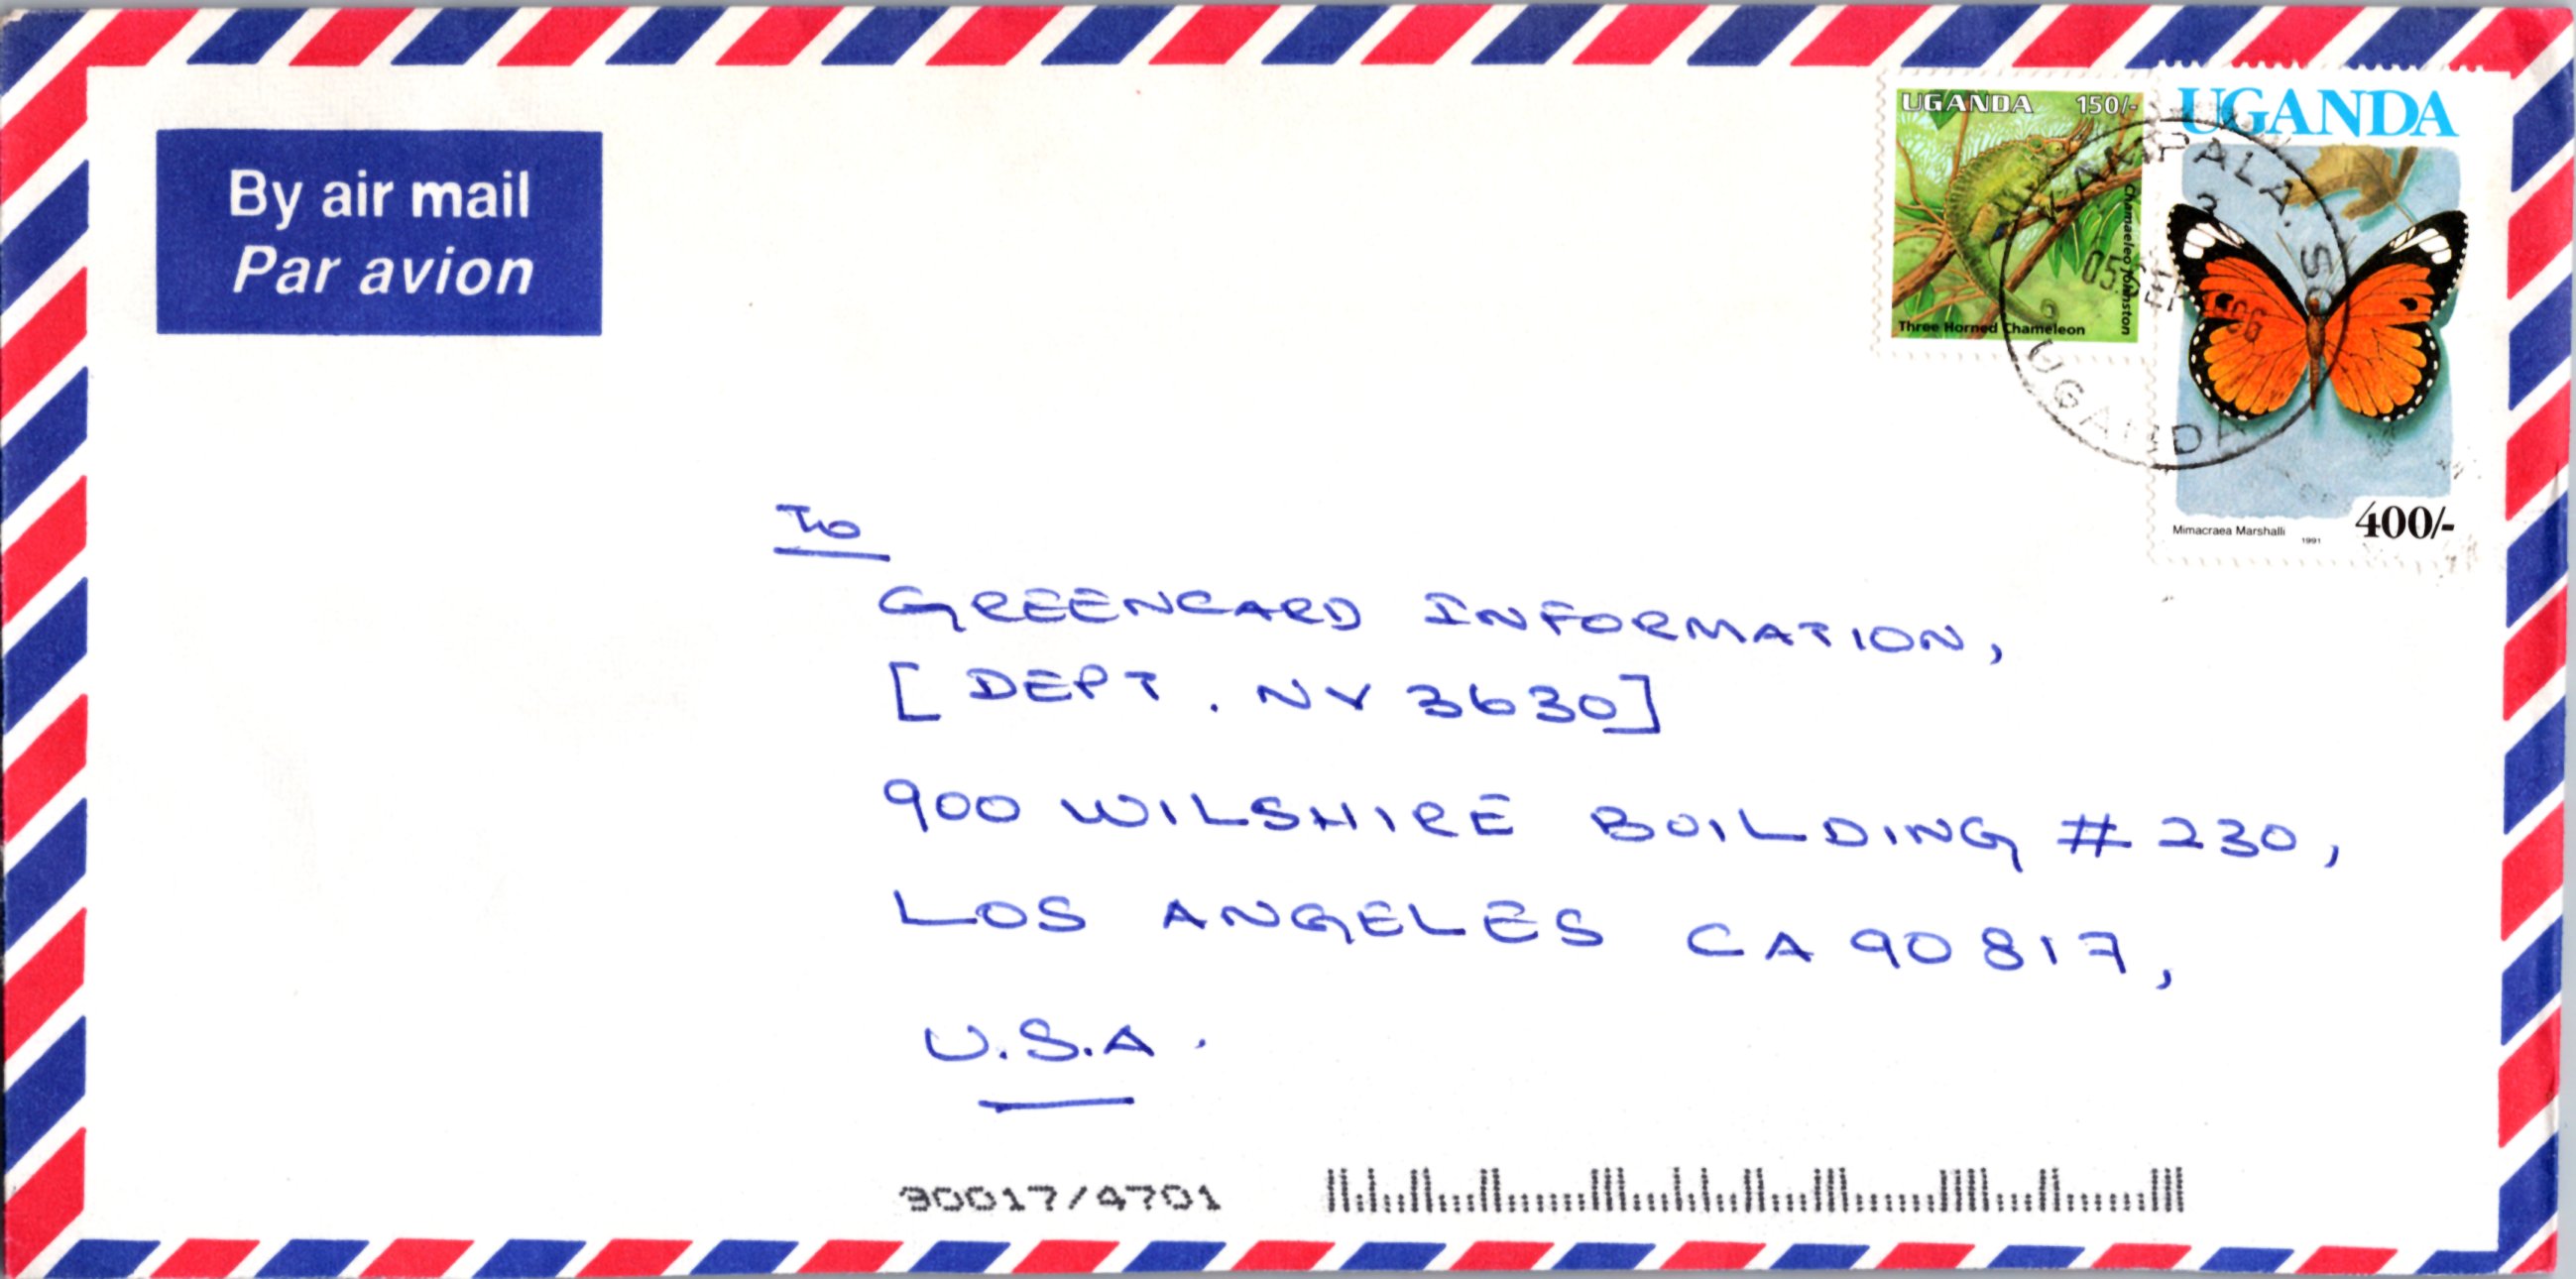 By air mail
Par avion
UGANDA 150/-
Chamaeleo johnston
Three Horned Chameleon
UGANDA
Mimacraea Marshalli 1991 400/-
KAMPALA.
05 SEP
UGANDA
To
GREENCARD INFORMATION,
[ DEPT. NY 3630]
900 WILSHIRE BUILDING # 230,
LOS ANGELES CA 90817,
U.S.A.
90017/4701